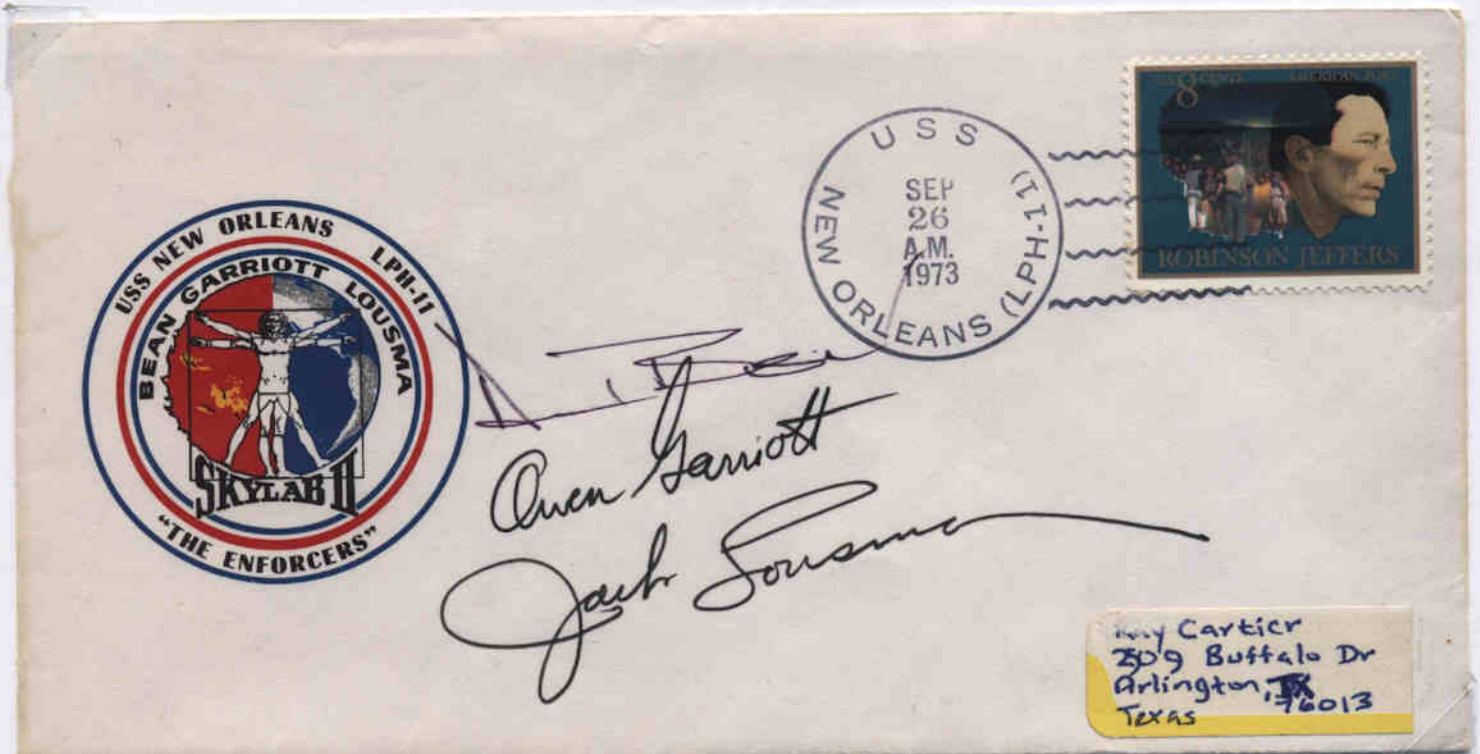 USS NEW ORLEANS LPH-11
BEAN GARRIOTT LOUSMA
SKYLAB II
"THE ENFORCERS"
USS
NEW ORLEANS (LPH-11)
SEP
26
A.M.
1973
US 8 CENTS AMERICAN POET
ROBINSON JEFFERS
Owen Garriott
Jack Lousma
Cartier
209 Buffalo Dr
Arlington, TX
76013
Texas